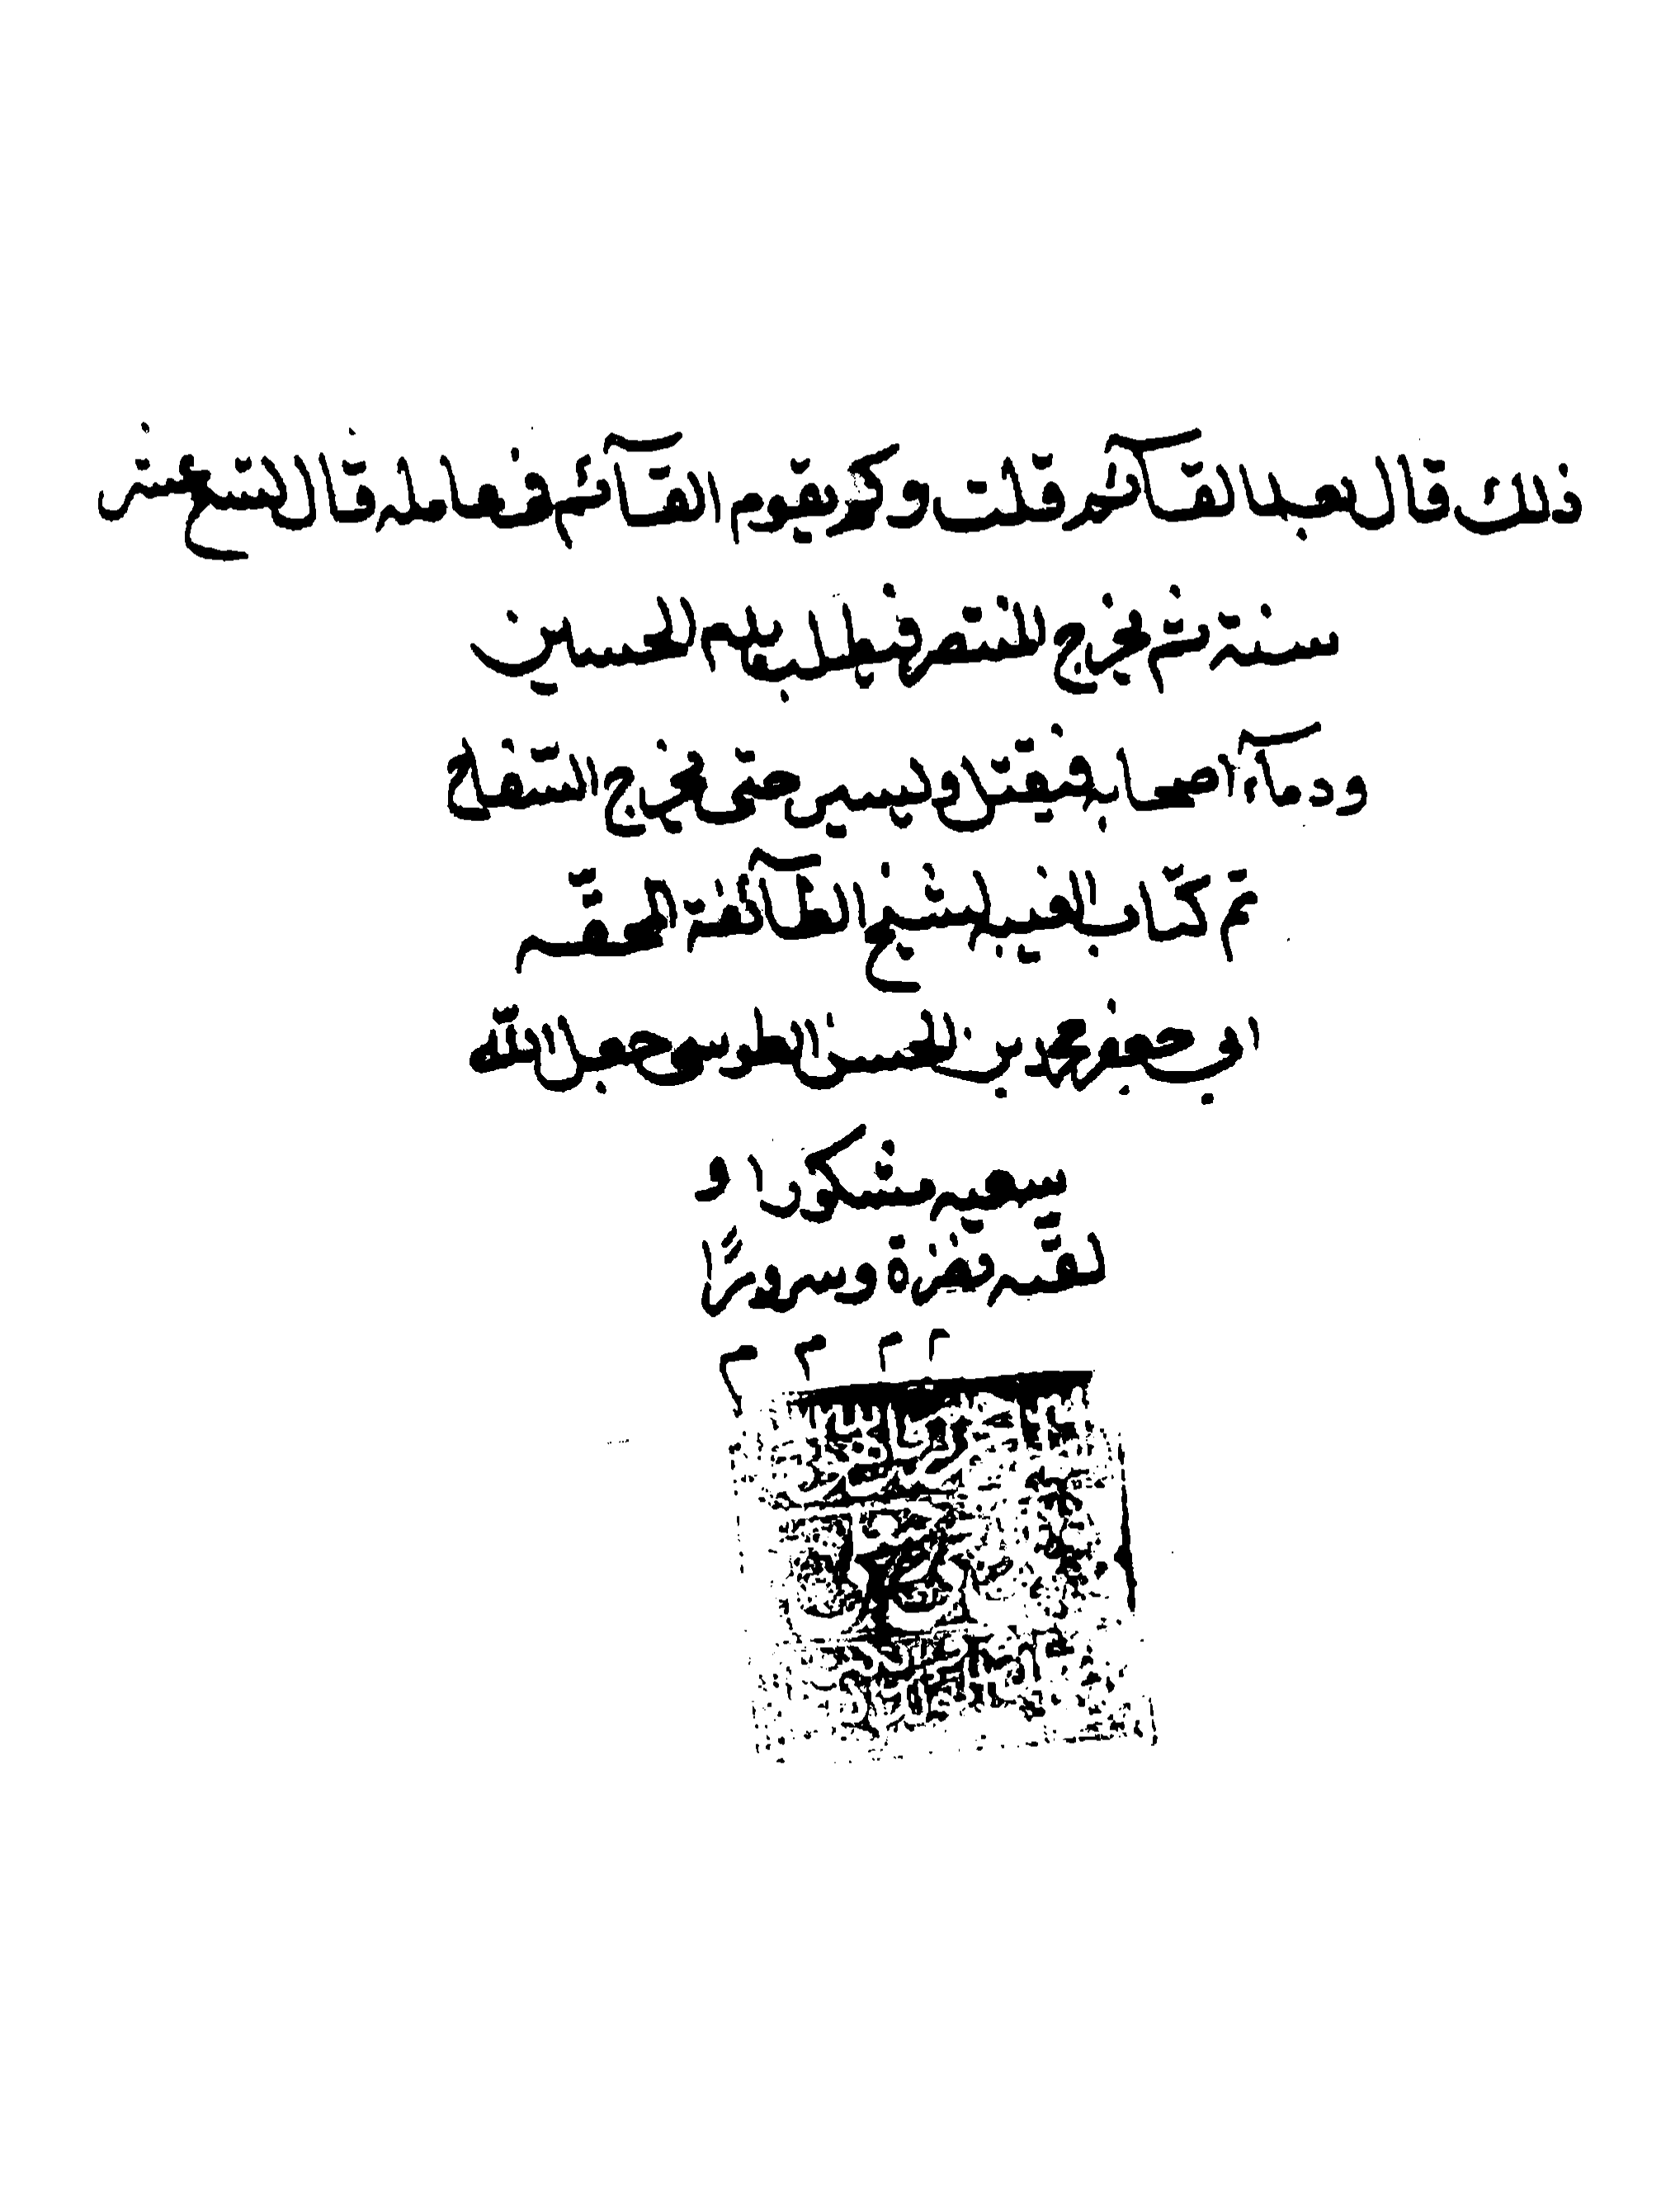 ذلك قال بعد القآئم قلت وكم يقوم القآئم في عامله قال تسع عشر
سنة ثم يخرج المنتصر فيطلب بدم الحسين
ودمآء اصحابه فيقتل ويسير حتى يخرج السّفاح
تم كتاب الغيبه لشيخ الطآئفة المحقّه
ابي جعفر محمد بن الحسن الطوسي جعل الله
سعيه مشكورا و
لقّیه نضرة وسرورًا
م م م م